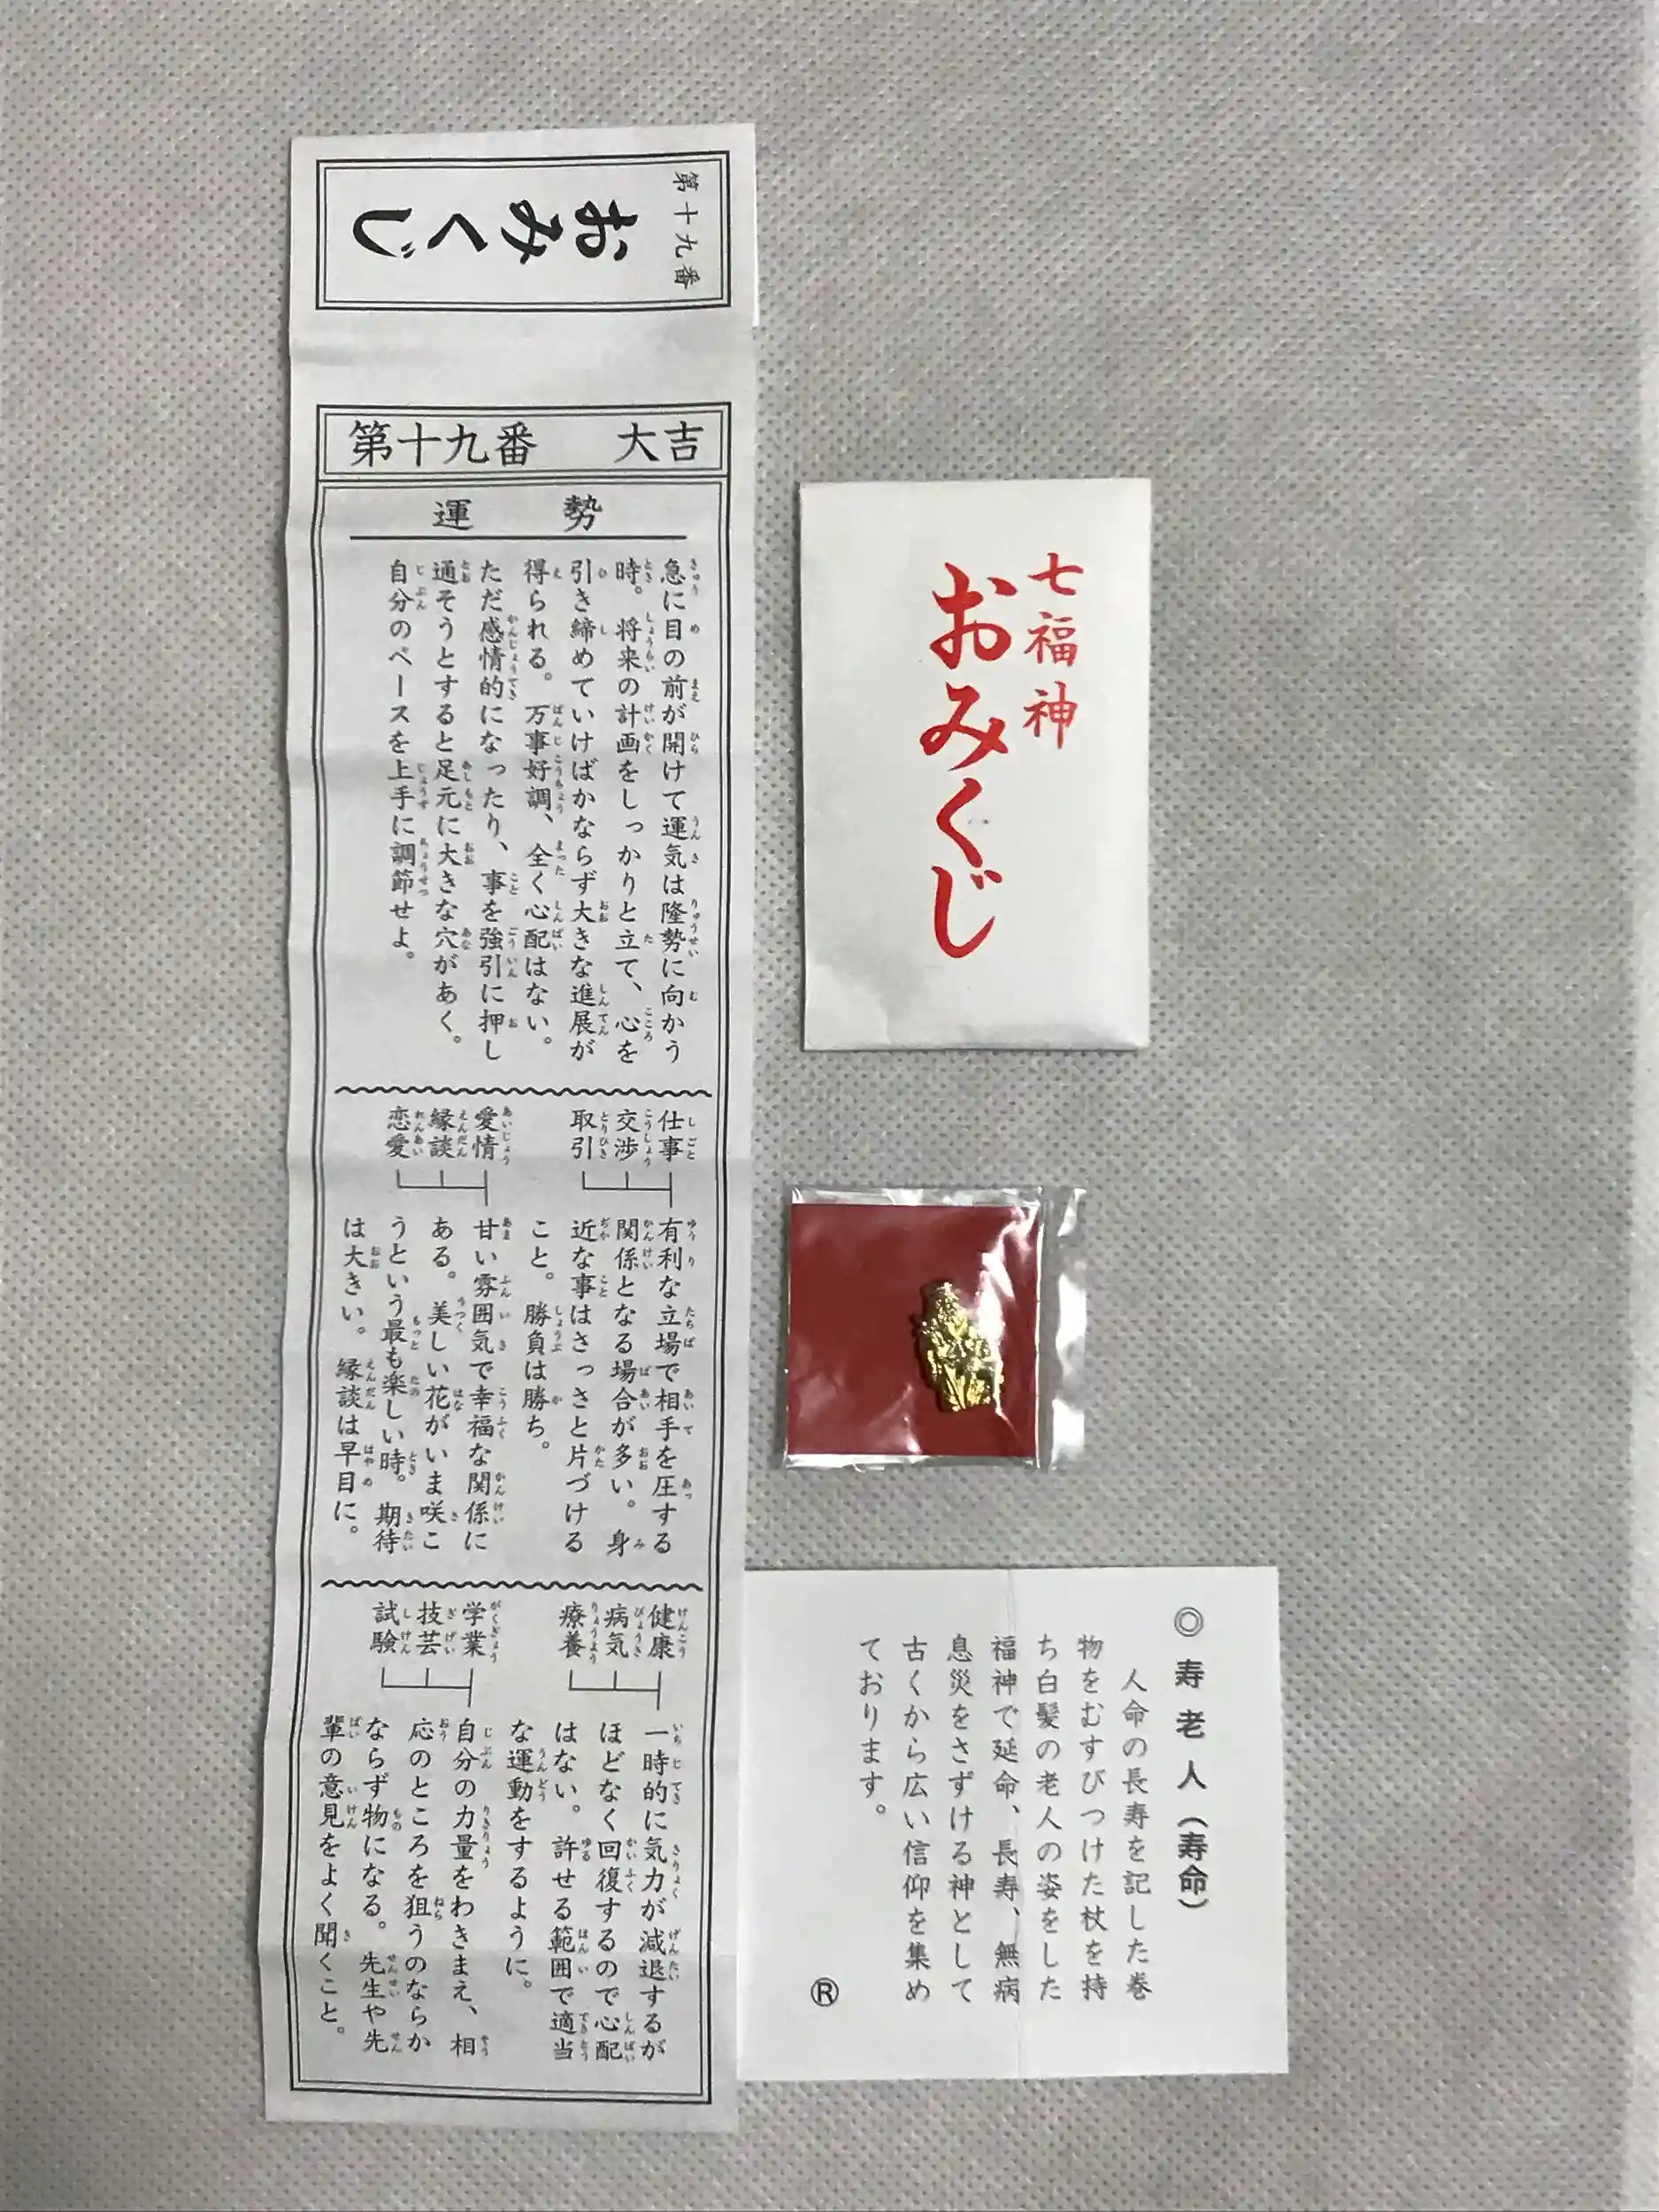 第十九番
おみくじ
第十九番 大吉
運勢
急に目の前が開けて運気は隆勢に向かう
時。将来の計画をしっかりと立て、心を
引き締めていけばかならず大きな進展が
得られる。万事好調、全く心配はない。
ただ感情的になったり、事を強引に押し
通そうとすると足元に大きな穴があく。
自分のペースを上手に調節せよ。
仕事
交渉
取引
有利な立場で相手を圧する
関係となる場合が多い。身
近な事はさっさと片づける
こと。勝負は勝ち。
愛情
縁談
恋愛
甘い雰囲気で幸福な関係に
ある。美しい花がいま咲こ
うという最も楽しい時。期待
は大きい。縁談は早目に。
健康
病気
療養
一時的に気力が減退するが
ほどなく回復するので心配
はない。許せる範囲で適当
な運動をするように。
学業
技芸
試験
自分の力量をわきまえ、相
応のところを狙うのならか
ならず物になる。先生や先
輩の意見をよく聞くこと。
七福神
おみくじ
◎寿老人（寿命）
人命の長寿を記した巻
物をむすびつけた杖を持
ち白髪の老人の姿をした
福神で延命、長寿、無病
息災をさずける神として
古くから広い信仰を集め
ております。
®